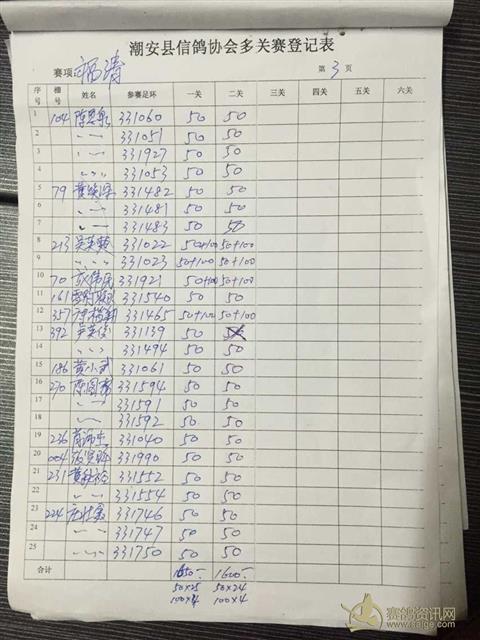 潮安县信鸽协会多关赛登记表
赛项: 第 3 页
序号 棚号 姓名 参赛足环 一关 二关 三关 四关 五关 六关
1 104 331060 50 50
2 〃 331051 50 50
3 〃 331927 50 50
4 〃 331053 50 50
5 79 331482 50 50
6 〃 331481 50 50
7 〃 331483 50 50
8 213 吴英 331022 50+100 50+100
9 〃 331023 50+100 50+100
10 70 331921 50+100 50+100
11 161 331540 50 50
12 357 331465 50+100 50+100
13 392 吴英 331139 50
14 〃 331494 50 50
15 186 黄小武 331061 50 50
16 270 陈图 331594 50 50
17 〃 331591 50 50
18 〃 331592 50 50
19 236 331040 50 50
20 004 331990 50 50
21 231 331552 50 50
22 〃 331554 50 50
23 224 331746 50 50
24 〃 331747 50 50
25 〃 331750 50 50
合计 1650- 1600-
50×25 50×24
100×4 100×4
赛鸽资讯网
www.saige.com